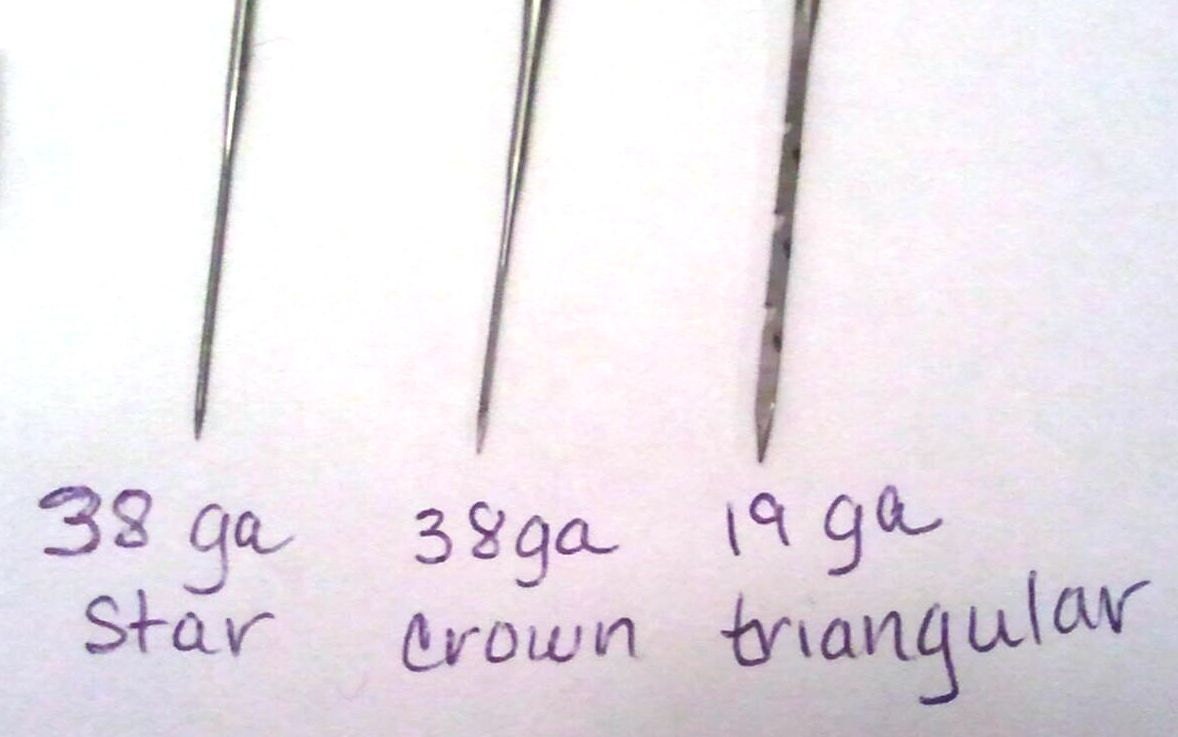 38 ga 38ga 19 ga
star crown triangular